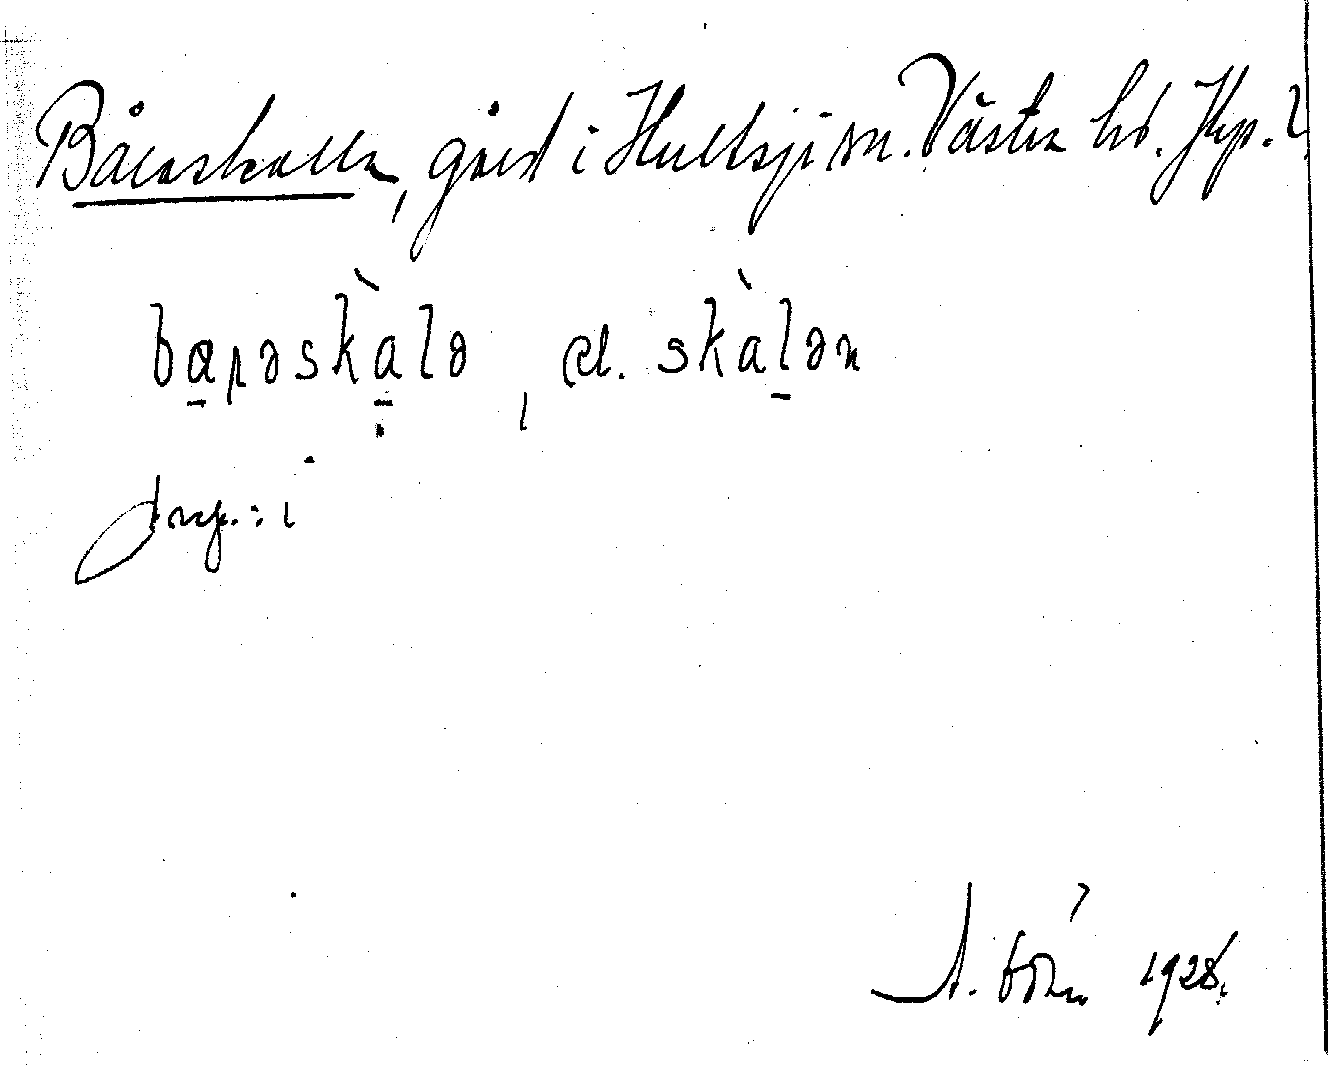 Båraskalla, gård i Hultsjö sn. Västra hd. Jkp. l.
ba̱rəskà̱lə, el. skàl̠ən
prep.: i
1928.